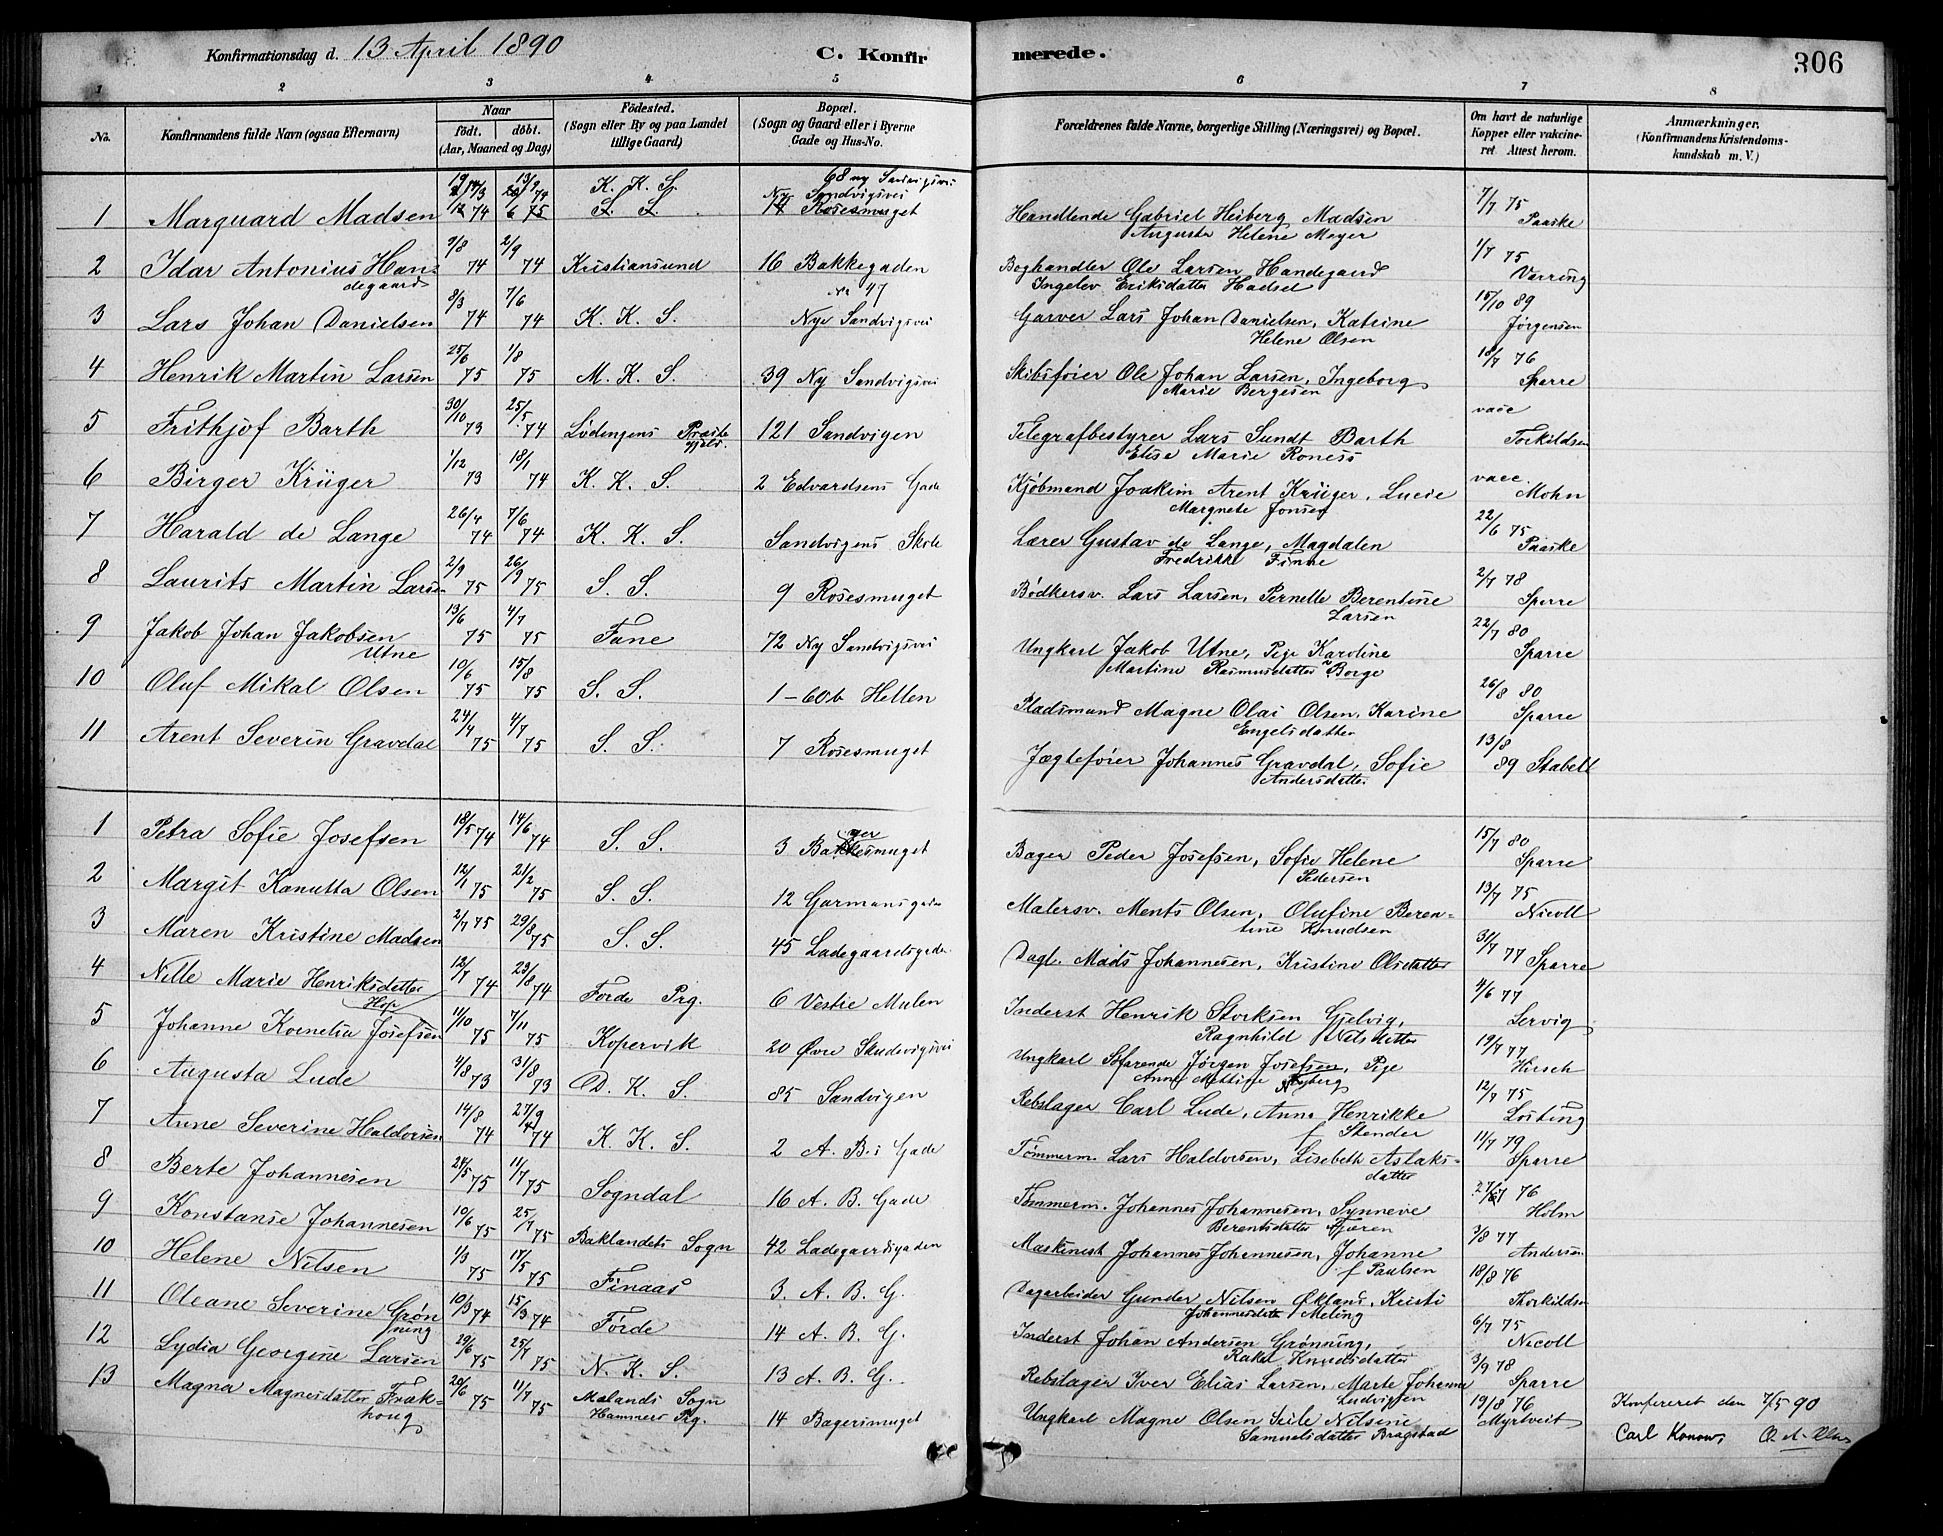 Konfirmationsdag d. 13 April 1890 C. Konfirmerede. 306
1 2 3 4 5 6 7 8
No. Konfirmandens fulde Navn (ogsaa Efternavn) Naar født. døbt. (Aar, Maaned og Dag) Fødested. (Sogn eller By og paa Landet tillige Gaard) Bopæl. (Sogn og Gaard eller i Byerne Gade og Hus-No. Forældrenes fulde Navne, borgerlige Stilling (Næringsvei) og Bopæl. Om havt de naturlige Kopper eller vakcineret Attest herom. Anmærkninger. (Konfirmandens Kristendomskundskab m. V.)
1 Marquard Madsen 74 13/9 74 K. K. S. 68 ny Sandvigsvei Rosesmuget Handlende Gabriel Heiberg Madsen Augusta Helene Meyer 7/7 75 Paaske
2 Idar Antonius Handegaard 9/8 74 2/9 74 Kristiansund 16 Bakkegaden Boghandler Ole Larsen Handegaard Ingelev Eriksdatter Hadsel 1/7 75 Varring
3 Lars Johan Danielsen 8/3 74 7/6 74 K. K. S. No 47 Nye Sandvigsvei Garver Lars Johan Danielsen, Katrine Helene Olsen 15/10 89 Jørgensen
4 Henrik Martin Larsen 25/6 75 1/8 75 M. K. S. 39 Ny Sandvigsvei Skibsfører Ole Johan Larsen, Ingeborg Marie Bergesen 18/7 76 Sparre
5 Frithjof Barth 30/10 73 25/5 74 Lødengens Præstegjeld. 121 Sandvigen Telegrafbestyrer Lars Sundt Barth Elise Marie Roness vacc Torkildsen
6 Birger Krüger 1/12 73 18/1 74 K. K. S. 2 Edvardsens Gade Kjøbmand Joakim Arent Krüger, Lucie Margnete Jonsen vacc. Mohn
7 Harald de Lange 26/4 74 7/6 74 K. K. S. Sandvigens Skole Lærer Gustav de Lange, Magdalen Fredrikke Finne 22/6 75 Paaske
8 Laurits Martin Larsen 2/9 75 26/9 75 S. S. 9 Rosesmuget Bødkersv. Lars Larsen, Pernelle Berentine Larsen 2/7 78 Sparre
9 Jakob Johan Jakobsen Utne 13/6 75 4/7 75 Fane 72 Ny Sandvigsvei Ungkarl Jakob Utne, Pige Karoline Martine Rasmusdatter Borge 22/7 80 Sparre
10 Oluf Mikal Olsen 10/6 75 15/8 75 S. S. 1-60b Hellen Pladsmand Magne Olai Olsen, Karine Engelsdatter 26/8 80 Sparre
11 Arent Severin Gravdal 24/4 75 4/7 75 S. S. 7 Rosesmuget Jægtefører Johannes Gravdal, Sofie Andersdatter 13/8 89 Stabell
1 Petra Sofie Josefsen 18/5 74 14/6 74 S. S. 3 Bagersmuget Bager Peder Josefsen, Sofie Helene Pedersen 15/7 80 Sparre
2 Margit Kanutta Olsen 12/1 75 21/2 75 S. S. 12 Garmansgade Malersv. Ments Olsen, Olufine Berentine Knudsen 13/7 75 Nicoll
3 Maren Kristine Madsen 2/7 75 29/8 75 S. S. 45 Ladegaardsgade Dagl. Mads Johannesen, Kristine Olsdatter 31/7 77 Sparre
4 Nille Marie Henriksdatter Hop 12/7 74 23/8 74 Førde Prg. 6 Vestre Mulen Inderst Henrik Storksen Gjelvig, Ragnhild Nilsdatter 4/6 77 Servig
5 Johanne Kornelia Josefsen 11/10 75 7/11 75 Kopervik 20 Øvre Studevigsvei Ungkarl Søfarende Jørgen Josefsen, Pige Anne Mettine Nyberg 19/7 77 Hirsch
6 Augusta Lude 4/8 73 31/8 73 D. K. S. 85 Sandvigen Rebslager Carl Lude, Anna Henrikke f Stender 12/7 75 Løsting
7 Anne Severine Haldorsen 14/8 74 27/9 74 K. K. S. 2 A. B.s Gade Tømmerm. Lars Haldorsen, Lisebeth Aslaksdatter 11/7 79 Sparre
8 Berte Johannesen 24/5 75 11/7 75 Sogndal 16 A. B. Gade Tømmerm. Johannes Johannesen, Synneve Berentsdatter Fjæren 76 Holm
9 Konstanse Johannesen 10/6 75 25/7 75 Baklandets Sogn 42 Ladegaardsgaden Maskinist Johannes Johannesen, Johanne f Paulsen 3/8 77 Andersen
10 Helene Nilsen 1/3 75 17/5 75 Finaas 3. A. B. G. Dagarbeider Gunder Nilsen Økland, Kristi Johannesdatter Meling 18/8 76 Thorkildsen
11 Oleane Severine Grønning 10/3 74 15/3 74 Førde 14 A. B. G. Inderst Johan Andersen Grønning, Rakel Knudsdatter 6/7 75 Nicoll
12 Lydia Georgine Larsen 29/6 75 25/7 75 N. K. S. 13 A. B. G. Rebslager Iver Elias Larsen, Marte Johanna Ludvigsen 3/9 78 Sparre
13 Magna Magnesdatter Frækhoug 20/6 75 11/7 75 Mælands Sogn Hammers Prg. 14 Bagersmuget Ungkarl Magne Olsen Seile Nilsine Samuelsdatter Bragstad 19/8 76 Myrtveit
Konfereret den 7/5 90
Carl Konow,